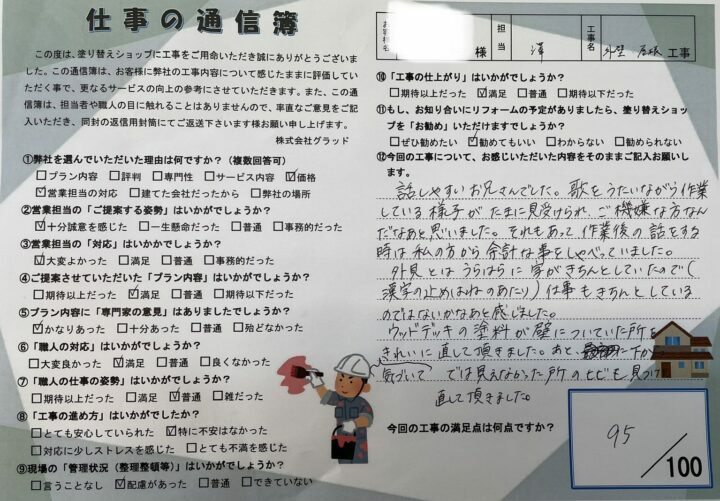 仕事の通信簿
この度は、塗り替えショップに工事をご用命いただき誠にありがとうござい
ました。この通信簿は、お客様に弊社の工事内容について感じたままに評価してい
ただく事で、更なるサービスの向上の参考にさせていただきます。また、この通信
簿は、担当者や職人の目に触れることはありませんので、率直なご意見をご記
入いただき、同封の返信用封筒にてご返送下さいます様お願い申し上げます。
株式会社グラッド
①弊社を選んでいただいた理由は何ですか？（複数回答可）
□プラン内容 □評判 □専門性 □サービス内容 ☑価格
☑営業担当の対応 □建てた会社だったから □弊社の場所
②営業担当の「ご提案する姿勢」はいかがでしょうか？
☑十分誠意を感じた □一生懸命だった □普通 □事務的だった
③営業担当の「対応」はいかがでしょうか？
☑大変よかった □満足 □普通 □事務的だった
④ご提案させていただいた「プラン内容」はいかがでしょうか？
□期待以上だった ☑満足 □普通 □期待以下だった
⑤プラン内容に「専門家の意見」はありましたでしょうか？
☑かなりあった □十分あった □普通 □殆どなかった
⑥「職人の対応」はいかがでしょうか？
□大変良かった ☑満足 □普通 □良くなかった
⑦「職人の仕事の姿勢」はいかがでしょうか？
□期待以上だった □満足 ☑普通 □雑だった
⑧「工事の進め方」はいかがでしたか？
□とても安心していられた ☑特に不安はなかった
□対応に少しストレスを感じた □とても不満を感じた
⑨現場の「管理状況（整理整頓等）」はいかがでしょうか？
□言うことなし ☑配慮があった □普通 □できていない
お客様名 様 担当 澤 工事名 外壁 屋根 工事
⑩「工事の仕上がり」はいかがでしょうか？
□期待以上だった ☑満足 □普通 □期待以下だった
⑪もし、お知り合いにリフォームの予定がありましたら、塗り替えショッ
プを「お勧め」いただけますでしょうか？
□ぜひ勧めたい ☑勧めてもいい □わからない □勧められない
⑫今回の工事について、お感じいただいた内容をそのままご記入お願いし
ます。
話しやすいお兄さんでした。歌をうたいながら作業
している様子がたまに見受けられ、ご機嫌な方なん
だなあと思いました。それもあって作業後の話をする
時は私の方から余計な事をしゃべっていました。
外見とはうらはらに字がきちんとしていたので(
漢字の止めはねのあたり)仕事もきちんとしている
のではないかなあと感じました。
ウッドデッキの塗料が壁についていた所を
きれいに直して頂きました。あと、 に下から
気づいて では見えなかった所のヒビも見つけ
直して頂きました。
今回の工事の満足点は何点ですか？
95
／100